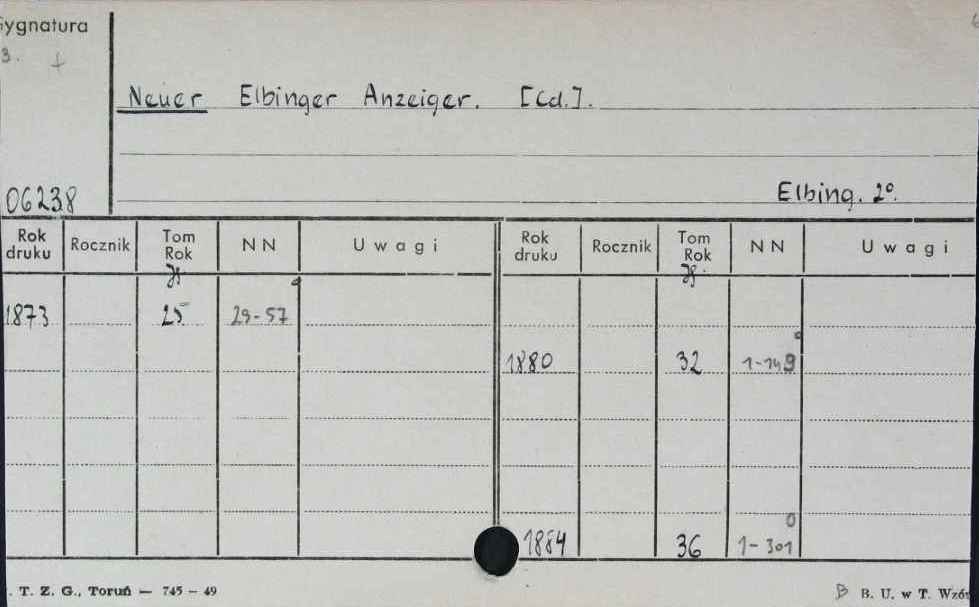 Sygnatura
3. +
Neuer Elbinger Anzeiger. [Cd.].
06238
Elbing. 2°.
Rok druku Rocznik Tom Rok NN Uwagi Rok druku Rocznik Tom Rok NN Uwagi
Jg. Jg.
1873 25 29-57
1880 32 1-149
1884 36 1-301
. T. Z. G., Toruń — 745 — 49
B. U. w T. Wzór